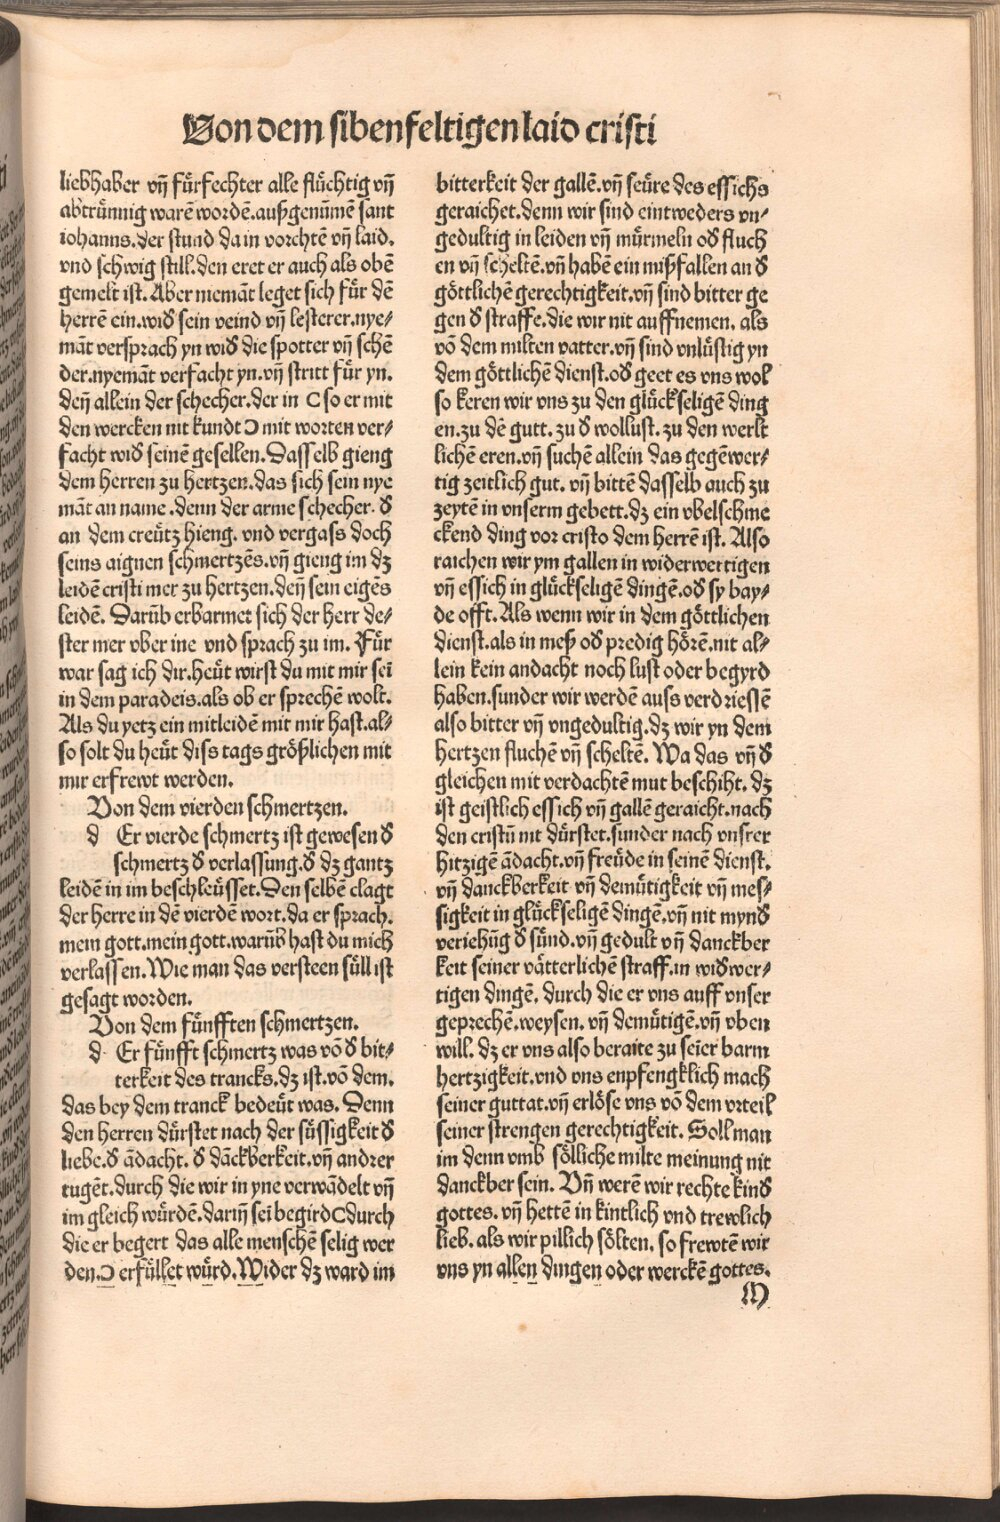 Von dem sibenfeltigen laid cristi
liebhaber vñ fürfechter alle flüchtig vñ
abtrünnig warē wordē.außgenūmē sant
iohanns.der stund da in vorchtē vñ laid.
vnd schwig still.den eret er auch als obē
gemelt ist. Aber niemāt leget sich für dē
herrē ein.wid' sein veind vñ lesterer.nye/
māt versprach yn wid' die spotter vñ schē
der.nyemāt verfacht yn.vñ stritt für yn.
deñ allein der schecher.der in C so er mit
den wercken nit kundt Ɔ mit worten ver/
facht wid' seinē gesellen. Dasselb gieng
dem herren zu hertzen.das sich sein nye
māt an name.denn der arme schecher. d'
an dem creütz hieng. vnd vergass doch
seins aignen schmertzēs.vñ gieng im dz
leidē cristi mer zu hertzen.deñ sein eigēs
leidē. Darūb erbarmet sich der herr de/
ster mer vber ine vnd sprach zu im. Für
war sag ich dir.heüt wirst du mit mir sei
in dem paradeis.als ob er sprechē wolt.
Als du yetz ein mitleidē mit mir hast.al/
so solt du heüt diss tags größlichen mit
mir erfrewt werden.
Von dem vierden schmertzen.
d Er vierde schmertz ist gewesen d'
schmertz d' verlassung.d' dz gantz
leidē in im beschleüsset.Den selbē clagt
der herre in dē vierdē wort.da er sprach.
mein gott.mein gott.warūb hast du mich
verlassen.Wie man das versteen süll ist
gesagt worden.
Von dem fünfften schmertzen.
d Er fünfft schmertz was vō d' bit/
terkeit des trancks.dz ist.vō dem.
das bey dem tranck bedeüt was. Denn
den herren dürstet nach der süssigkeit d'
liebe.d' ādacht. d' dāckberkeit.vñ andrer
tugēt.durch die wir in yne verwādelt vñ
im gleich würdē.dariñ sei begird C durch
die er begert das alle menschē selig wer
den.Ɔ erfüllet würd.Wider dz ward im
bitterkeit der gallē.vñ seüre des essichs
geraichet.denn wir sind eintweders vn/
gedultig in leiden vñ mürmeln od' fluch
en vñ scheltē.vñ habē ein mißfallen an d'
göttlichē gerechtigkeit.vñ sind bitter ge
gen d' straffe.die wir nit auffnemen. als
vō dem milten vatter.vñ sind vnlüstig yn
dem göttlichē dienst.od' geet es vns wol
so keren wir vns zu den glückseligē ding
en.zu dē gutt. zu d' wollust. zu den werlt
lichē eren.vñ suchē allein das gegēwer/
tig zeitlich gut. vñ bittē dasselb auch zu
zeytē in vnserm gebett.dz ein vbelschme
ckend ding vor cristo dem herrē ist. Also
raichen wir ym gallen in widerwertigen
vñ essich in glückseligē dingē.od' sy bay/
de offt. Als wenn wir in dem göttlichen
dienst.als in meß od' predig hörē.nit al/
lein kein andacht noch lust oder begyrd
haben.sunder wir werdē auss verdriessē
also bitter vñ vngedultig.dz wir yn dem
hertzen fluchē vñ scheltē. Wa das vñ d'
gleichen mit verdachtē mut beschiht. dz
ist geistlich essich vñ gallē geraicht.nach
den cristū nit dürstet.sunder nach vnsrer
hitzigē ādacht.vñ freüde in seinē dienst.
vñ danckberkeit vñ demütigkeit vñ mes/
sigkeit in glückseligē dingē.vñ nit mynd'
veriehūg d' sünd.vñ gedult vñ danckber
keit seiner vätterlichē straff.in wid'wer/
tigen dingē. durch die er vns auff vnser
geprechē.weysen. vñ demütigē.vñ vben
will. dz er vns also beraite zu seīer barm
hertzigkeit.vnd vns enpfengklich mach
seiner guttat.vñ erlöse vns vō dem vrteil
seiner strengen gerechtigkeit. Soll man
im denn vmb sölliche milte meinung nit
danckber sein. Vñ werē wir rechte kind'
gottes. vñ hetten in kintlich vnd trewlich
lieb. als wir pillich sölten. so frewtē wir
vns yn allen dingen oder werckē gottes.
M